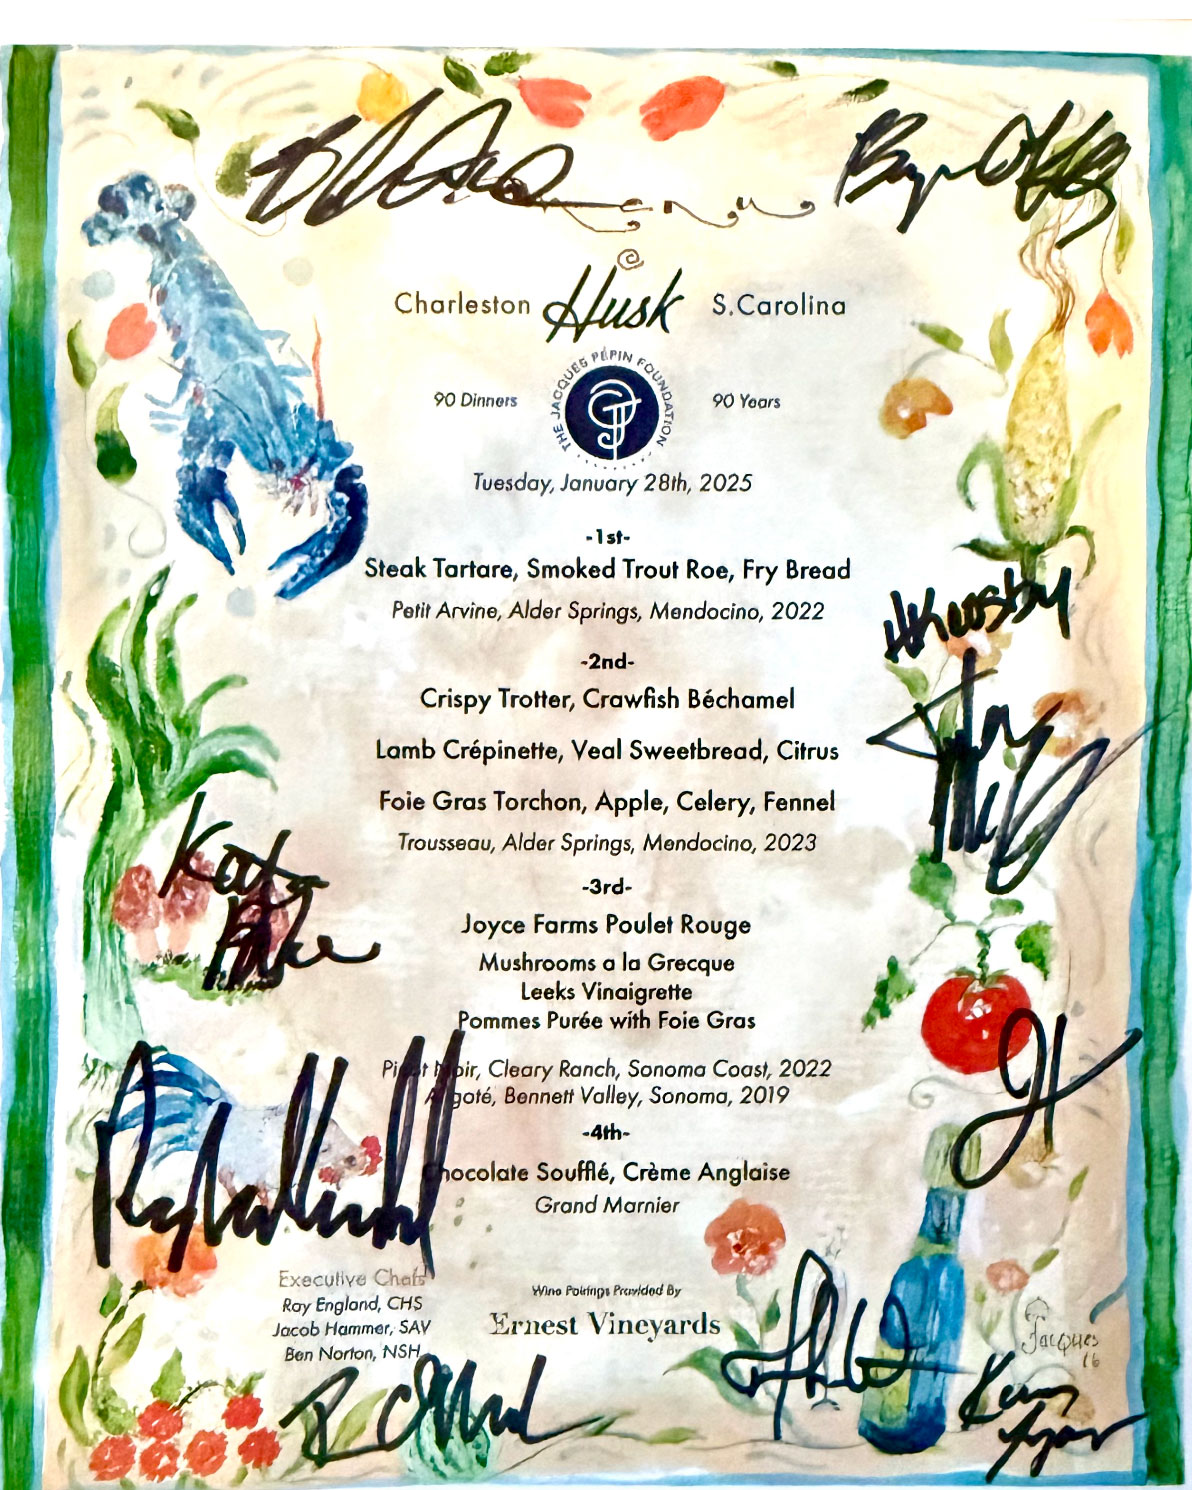 Menu
Charleston Husk S.Carolina
THE JACQUES PÉPIN FOUNDATION
90 Dinners 90 Years
Tuesday, January 28th, 2025
-1st-
Steak Tartare, Smoked Trout Roe, Fry Bread
Petit Arvine, Alder Springs, Mendocino, 2022
-2nd-
Crispy Trotter, Crawfish Béchamel
Lamb Crépinette, Veal Sweetbread, Citrus
Foie Gras Torchon, Apple, Celery, Fennel
Trousseau, Alder Springs, Mendocino, 2023
-3rd-
Joyce Farms Poulet Rouge
Mushrooms a la Grecque
Leeks Vinaigrette
Pommes Purée with Foie Gras
Pinot Noir, Cleary Ranch, Sonoma Coast, 2022
Aligoté, Bennett Valley, Sonoma, 2019
-4th-
Chocolate Soufflé, Crème Anglaise
Grand Marnier
Executive Chefs
Ray England, CHS
Jacob Hammer, SAV
Ben Norton, NSH
Wine Pairings Provided By
Ernest Vineyards
Jacques
16